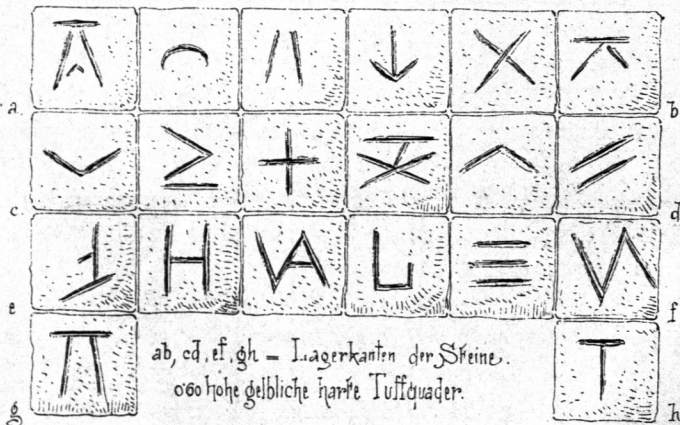 a b
c d
e f
ab, cd, ef, gh = Lagerkanten der Steine.
0·60 hohe gelbliche harte Tuffquader.
g h